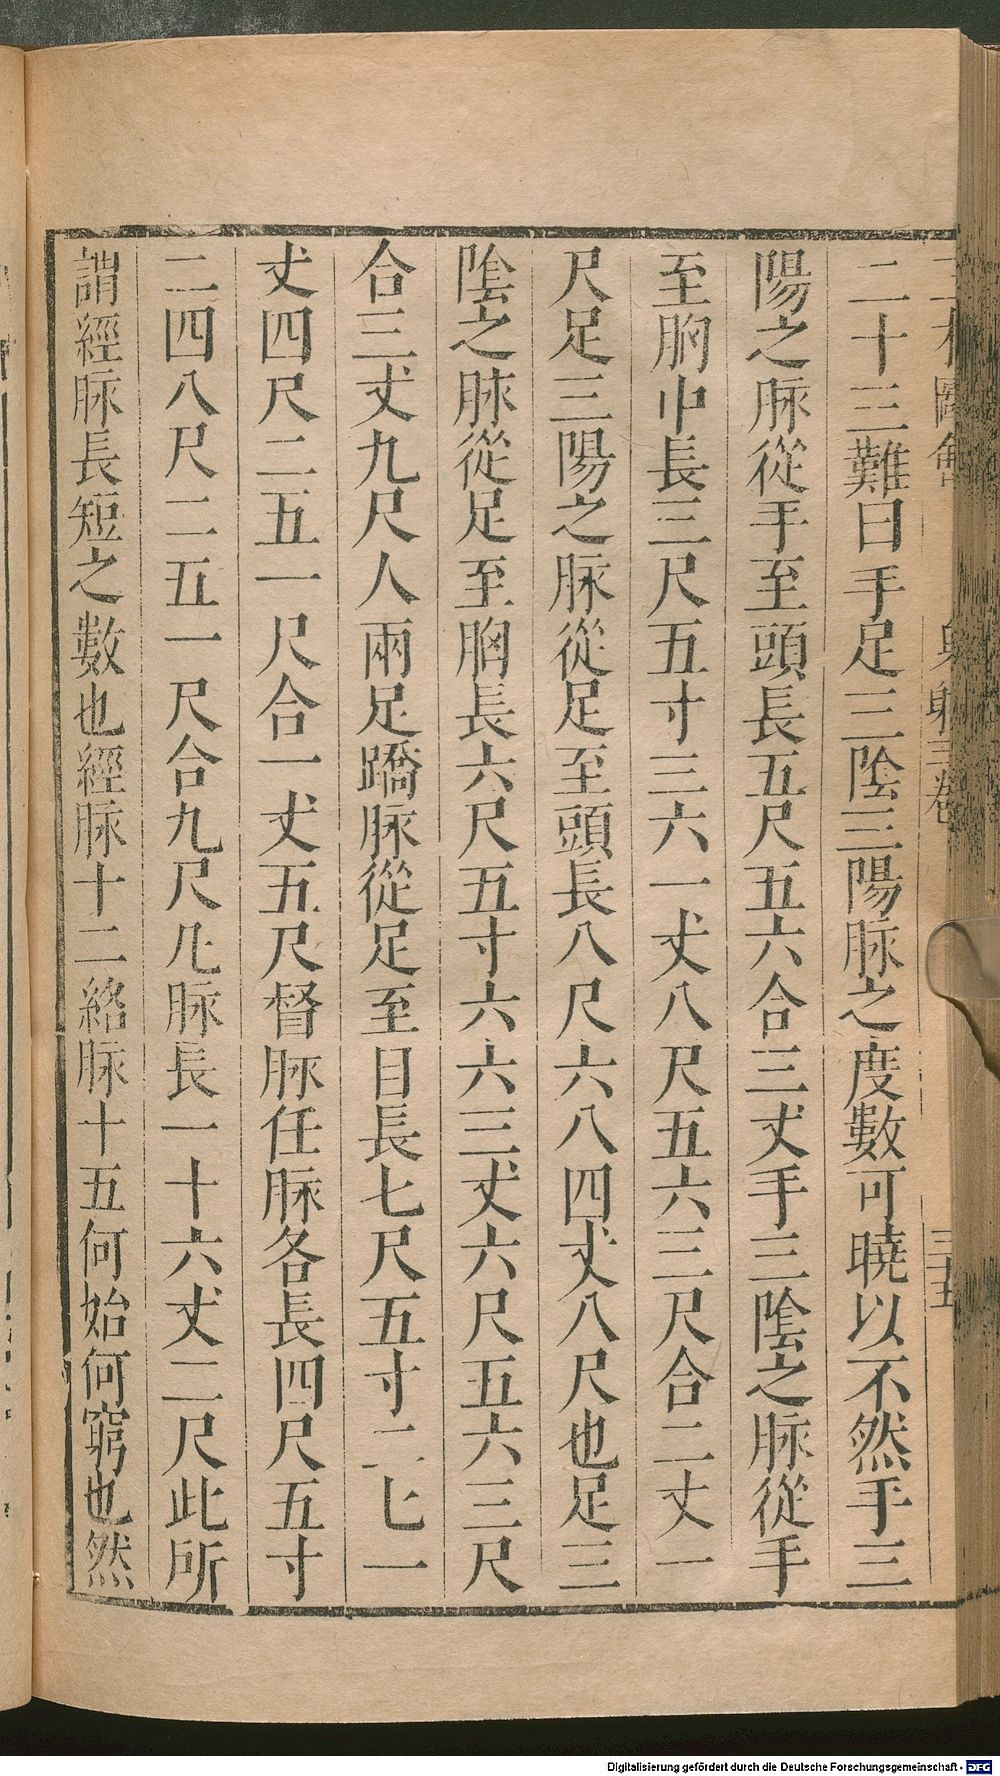 三才圖會 身體三卷 三十五
二十三難曰手足三陰三陽脉之度數可曉以不然手三
陽之脉從手至頭長五尺五六合三丈手三陰之脉從手
至胸中長三尺五寸三六一丈八尺五六三尺合二丈一
尺足三陽之脉從足至頭長八尺六八四丈八尺也足三
陰之脉從足至胸長六尺五寸六六三丈六尺五六三尺
合三丈九尺人兩足蹻脉從足至目長七尺五寸二七一
丈四尺二五一尺合一丈五尺督脉任脉各長四尺五寸
二四八尺二五一尺合九尺凡脉長一十六丈二尺此所
謂經脉長短之數也經脉十二絡脉十五何始何窮也然
Digitalisierung gefördert durch die Deutsche Forschungsgemeinschaft - DFG